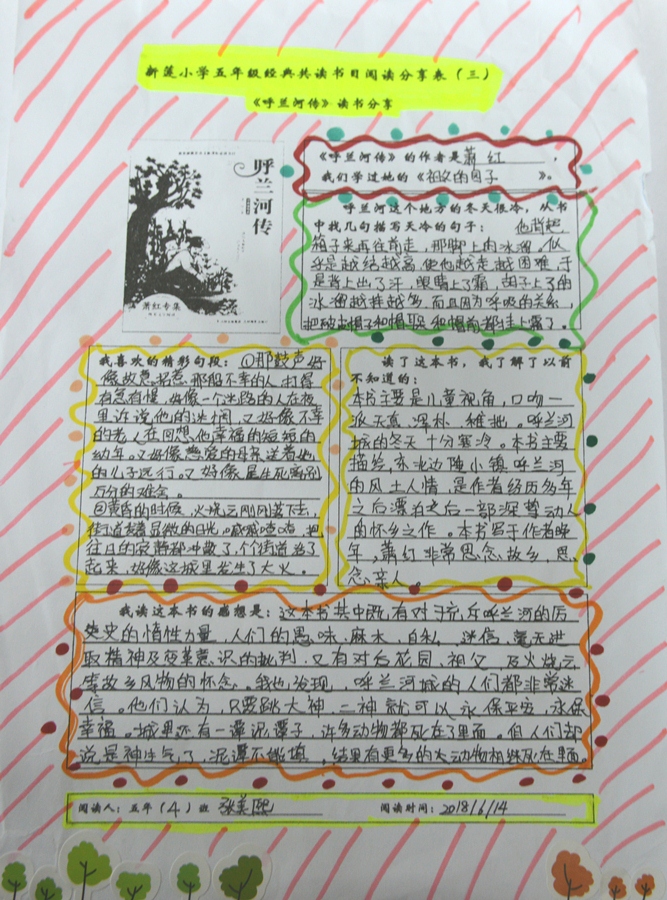 新莲小学五年级经典共读书目阅读分享表（三）
《呼兰河传》读书分享
呼兰河传
萧红专集
《呼兰河传》的作者是萧红，
我们学过她的《祖父的园子》。
呼兰河这个地方的冬天很冷，从书
中找几句描写天冷的句子：他背起
箱子来再往前走，那脚上的冰溜，似
乎是越结越高，使他越走越困难，于
是背上出了汗，眼睛上了霜，胡子上了的
冰溜越挂越多，而且因为呼吸的关系，
把破皮帽子和帽聪和帽前都挂上霜了。
我喜欢的精彩句段：①那鼓声好
像故急招惹，那般不幸的人，打得
有急有慢，好像一个迷路的人在夜
里诉说他的迷惘，又好像不幸
的老人在回想他幸福的短短的
幼年。又好像慈爱的母亲送着她
的儿子远行。又好像是生死离别
万分的难舍。
②黄昏的时候，火烧云刚刚落下去，
街道发着显微的日光。咸喊喳喳，把
往日的寂静都冲散了，个街道当了
起来，好像这城里发生了大火。
读了这本书，我了解了以前
不知道的：
本书主要是儿童视角，口吻一
派天真、浑朴、稚拙。呼兰河
城的冬天十分寒冷。本书主要
描绘，东北边陲小镇呼兰河
的风土人情，是作者经历多年
之后漂泊之后一部深挚动人
的怀乡之作。本书写于作者晚
年，萧红非常思念故乡，思
念亲人。
我读这本书的感想是：这本书其中既有对于充斥呼兰河的历
史的惰性力量，人们的愚味、麻木、自私、迷信、毫无进
取精神及变革意识的批判，又有对后花园、祖父、及火烧云
等故乡风物的怀念。我也发现，呼兰河城的人们都非常迷
信。他们认为，只要跳大神、二神就可以永保平安，永保
幸福。城里还有一潭泥潭子，许多动物都死在了里面。但人们却
说是神生气了，泥潭不能填，结果有更多的大动物相继死在里面。
阅读人：五年（4）班 张美熙
阅读时间：2018/6/14